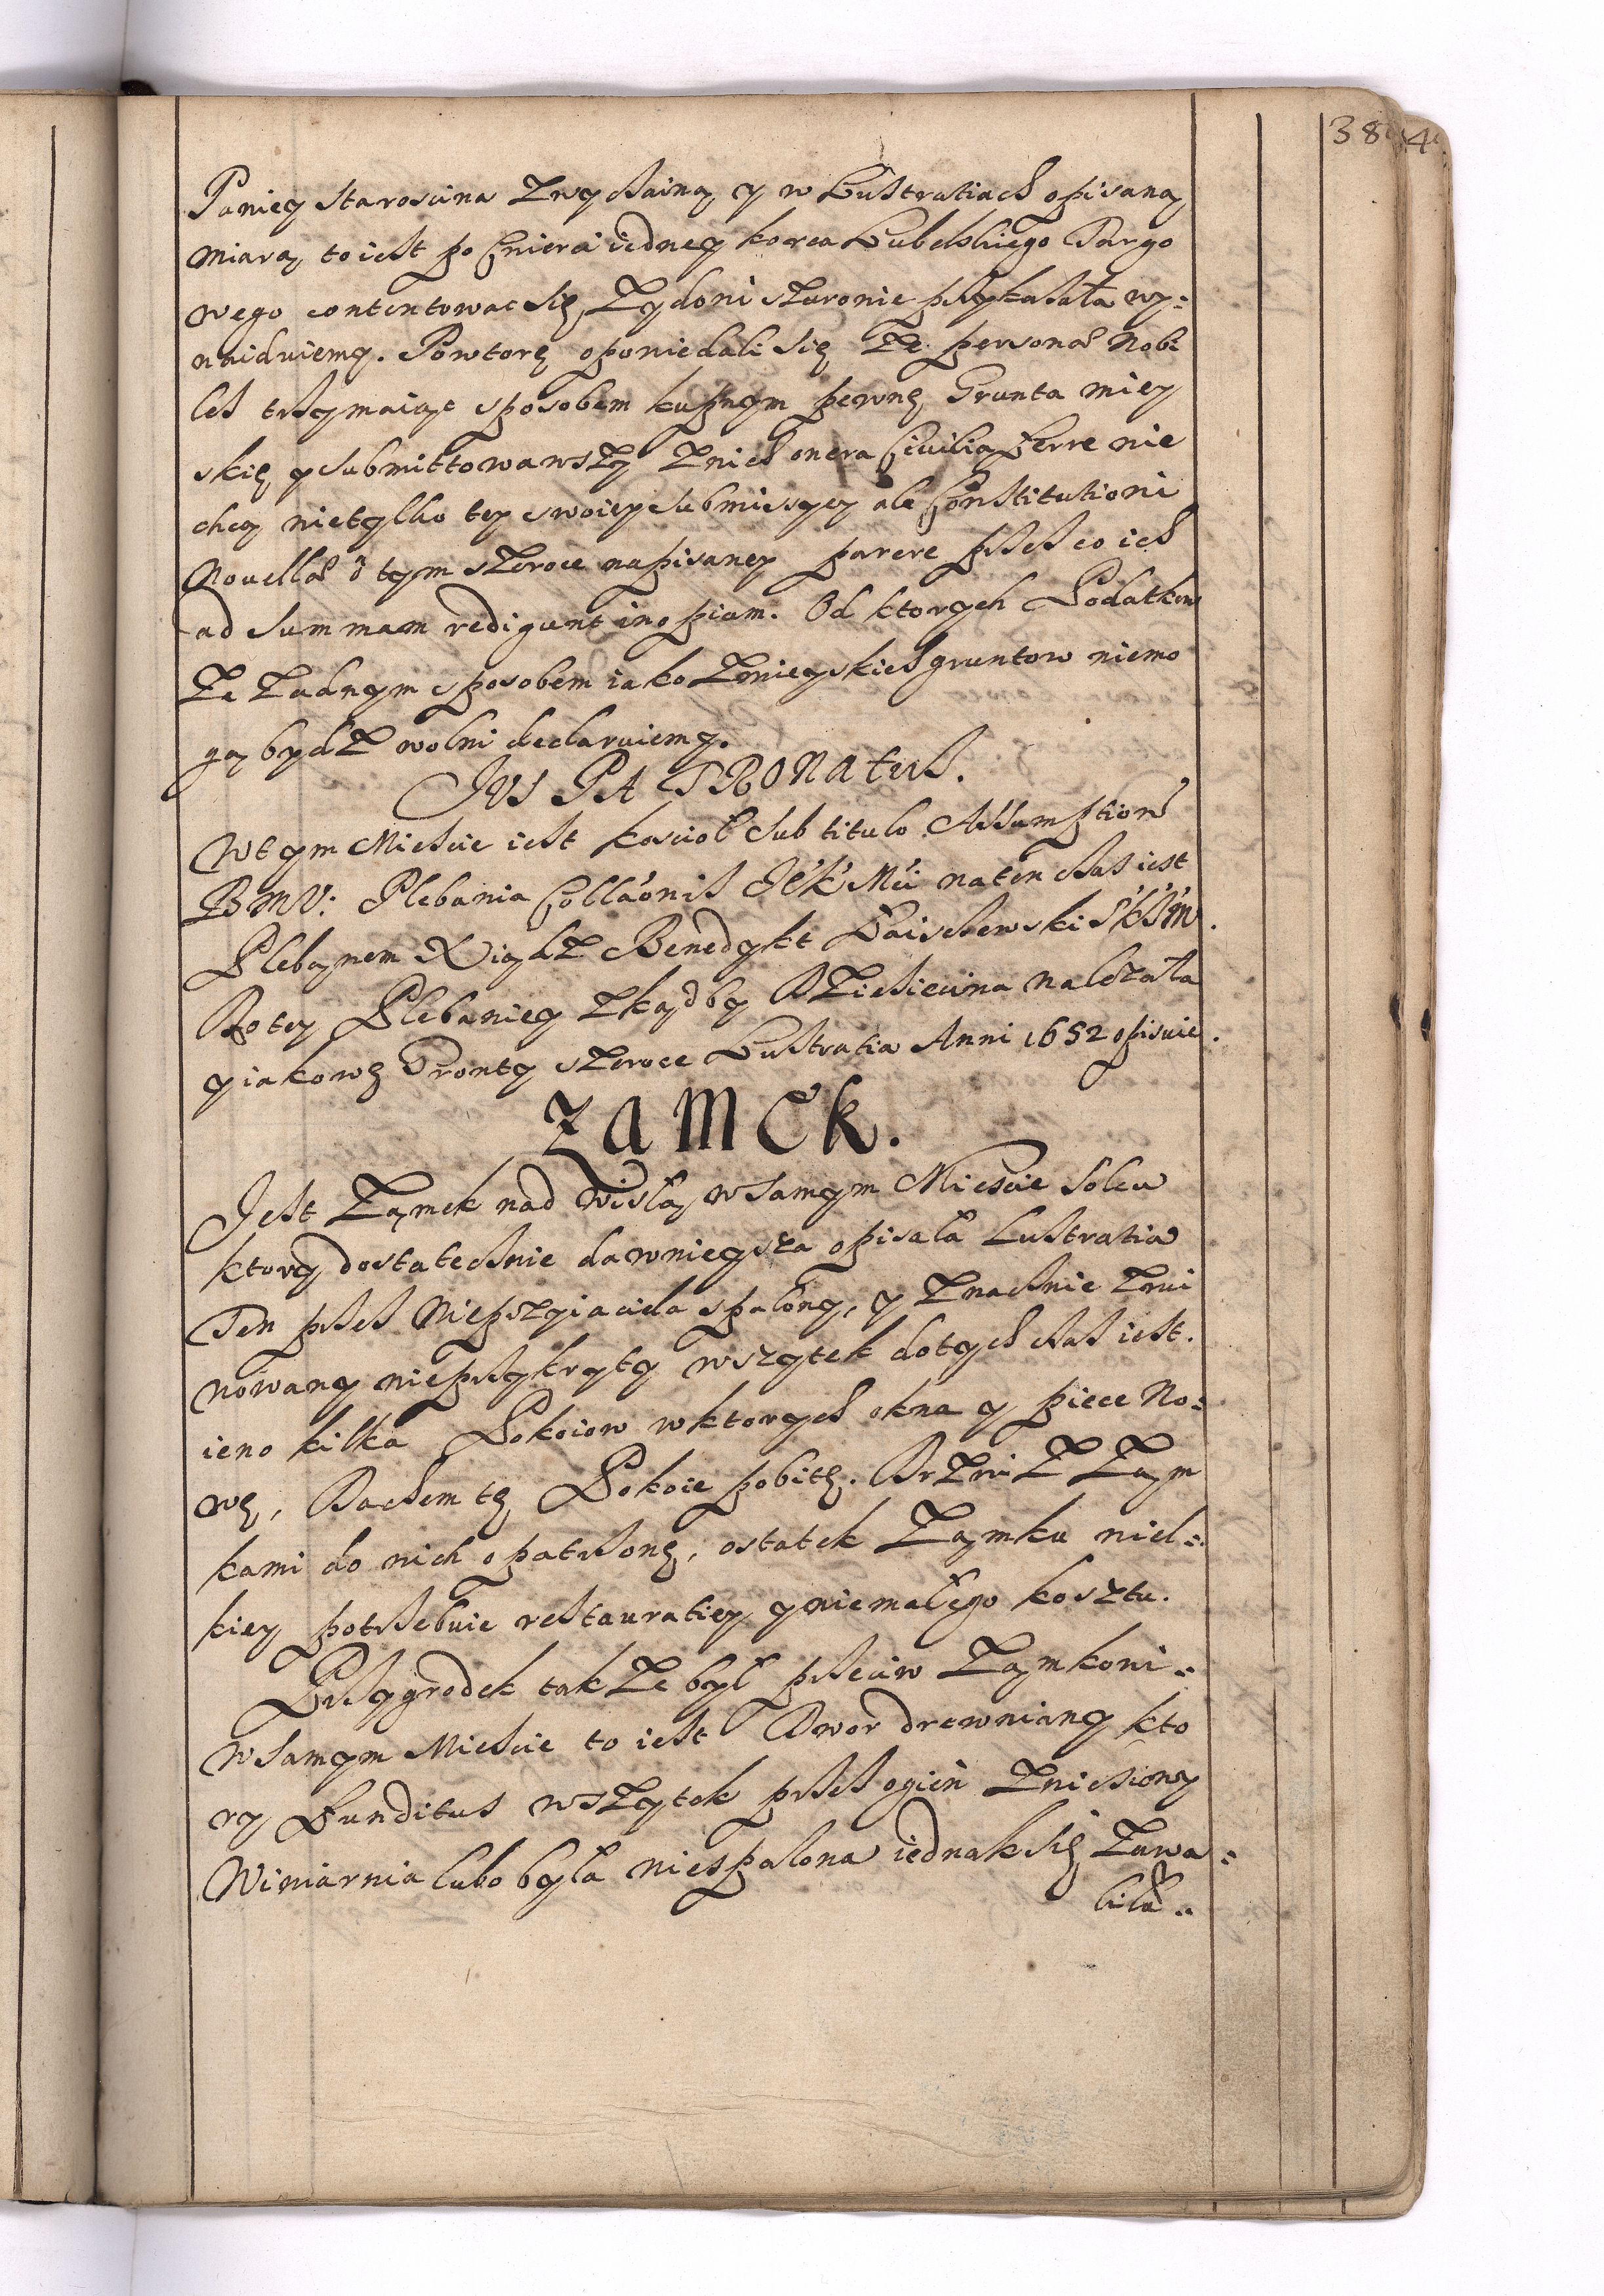 384
Paniey Starosćina Zwyczaina y w Lustratiach opisaną
miarą to iest po Cwierci iedney korca Lubelskiego Targo
wego contentowac się, Zydowi szurowie przykazała wy=
naiduiemy. Powtore opowiedali się Ze personas Nobi
les trzymaiąc sposobem kupnym pewne Grunta miey
skie y submittowawszy Znich onera Civilia Ferre nie
chcą nietylko tey swoiey submissyey ale Constitutioni
Novellae o tym szeroce napisaney parere przez co ich
ad summam redigunt inopiam. Od ktorych Podatkow
Ze Zadnym sposobem iako Zmieyskich gruntow niemo
gą bydZ wolni declaruiemy.
JUS PATRONATUS.
Wtym Miescie iest kosciol Sub titulo Assumption
BMV: Plebania Collaonis JeK Mci naten czas iest
Plebanem XiądZ Benedykt SKJM.
Do tey Plebaniey Zkądby DZiesiecina nalezała
y iakowe Gronty szeroce Lustratia Anni 1652 opisuie.
ZAMEK.
Jest Zamek nad Wisłą w samym Miescie Solcu
ktory dostatecznie dawnieysza opisała Lustratia
Ten przez Niepszyiaciela spalony, y Znacznie Zrui
nowany nieprzykryty wszytek dotych czas iest.
ieno kilka Pokoiow w ktorych okna y piece No=
we, Dachem te Pokoie pobite. DrZwi Z Zam
kami do nich opatrzone, ostatek Zamku niel=
kiey potrzebuie restauratiey y niemałego kosztu.
Przygrodek takZe był przeciw Zamkowi=
w samym Miescie to iest Dwor drewniany kto
ry Funditus wsZytek przez ogień Zniesiony
Winiarnia lubo była niespalona iednak się Zawa=
liła..